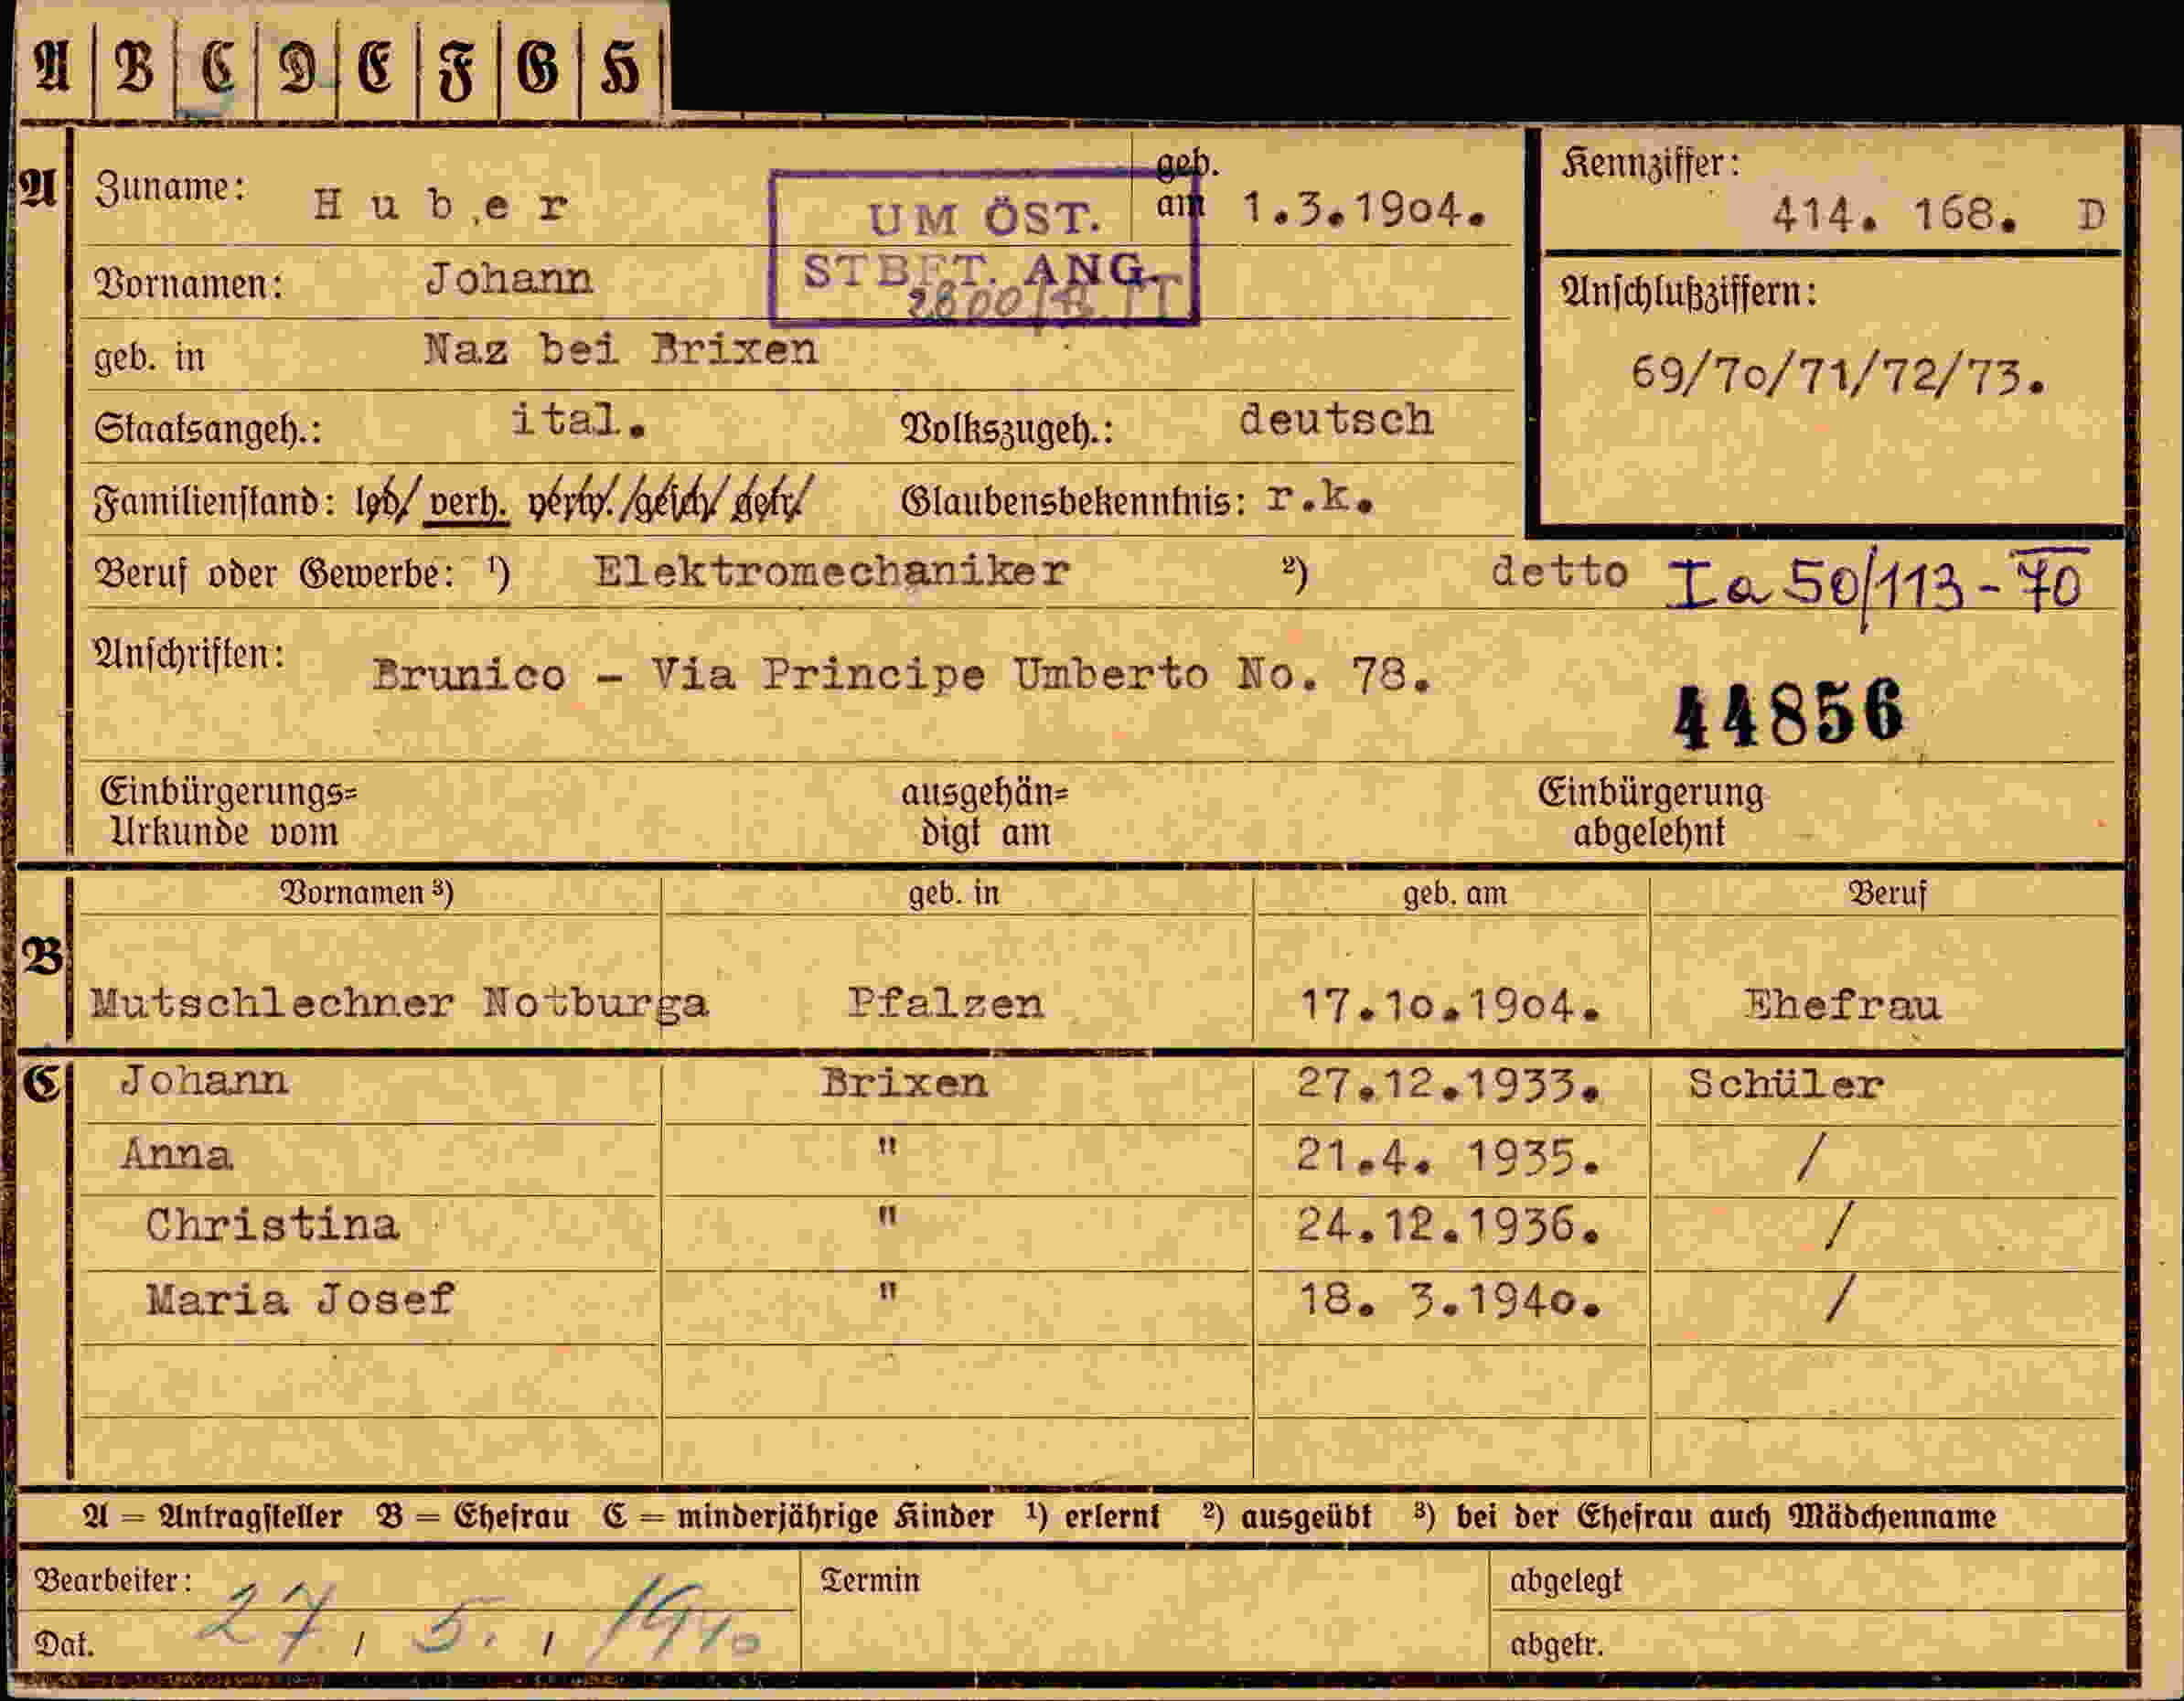 A B C D E F G H
A Zuname: Huber geb. am 1.3.1904. Kennziffer: 414. 168. D
UM ÖST. STBET. ANG.
Vornamen: Johann
Anschlußziffern: 69/70/71/72/73.
geb. in Naz bei Brixen
Staatsangeh.: ital. Volkszugeh.: deutsch
Familienstand: led/ verh. verw./gesch/ getr/ Glaubensbekenntnis: r.k.
Beruf oder Gewerbe: ¹) Elektromechaniker ²) detto Ia 50/113-70
Anschriften: Brunico - Via Principe Umberto No. 78.
44856
Einbürgerungs= Urkunde vom ausgehän= digt am Einbürgerung abgelehnt
Vornamen ³) geb. in geb. am Beruf
B Mutschlechner Notburga Pfalzen 17.10.1904. Ehefrau
C Johann Brixen 27.12.1933. Schüler
Anna " 21.4. 1935. /
Christina " 24.12.1936. /
Maria Josef " 18. 3.1940. /
A = Antragsteller B = Ehefrau C = minderjährige Kinder ¹) erlernt ²) ausgeübt ³) bei der Ehefrau auch Mädchenname
Bearbeiter: Termin abgelegt
Dat. 27. 5. 1940 abgetr.